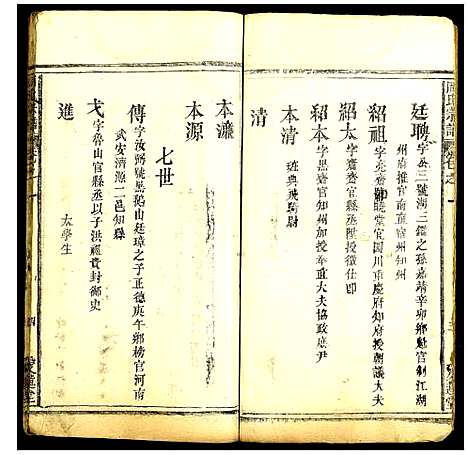 廷聘字𫝊三號湖三鑑之孫嘉靖辛卯鄉魁官制江湖
州府推官南直宿州知州
紹祖字克齋號曉堂官四川重慶府知府授朝議大夫
紹太字齋齋官縣丞陞授徵仕郎
紹本字黑齋官知州加授奉直大夫協政庶尹
本清
班典飛騎尉
清
本濂
本源
七世
傳字汝弼號黑鵝山廷璋之子正德庚午鄉榜官河南
武安濟源二邑知縣
戈字魯山官縣丞以子洪禮貴封御史
進
太學生
愛蓮堂